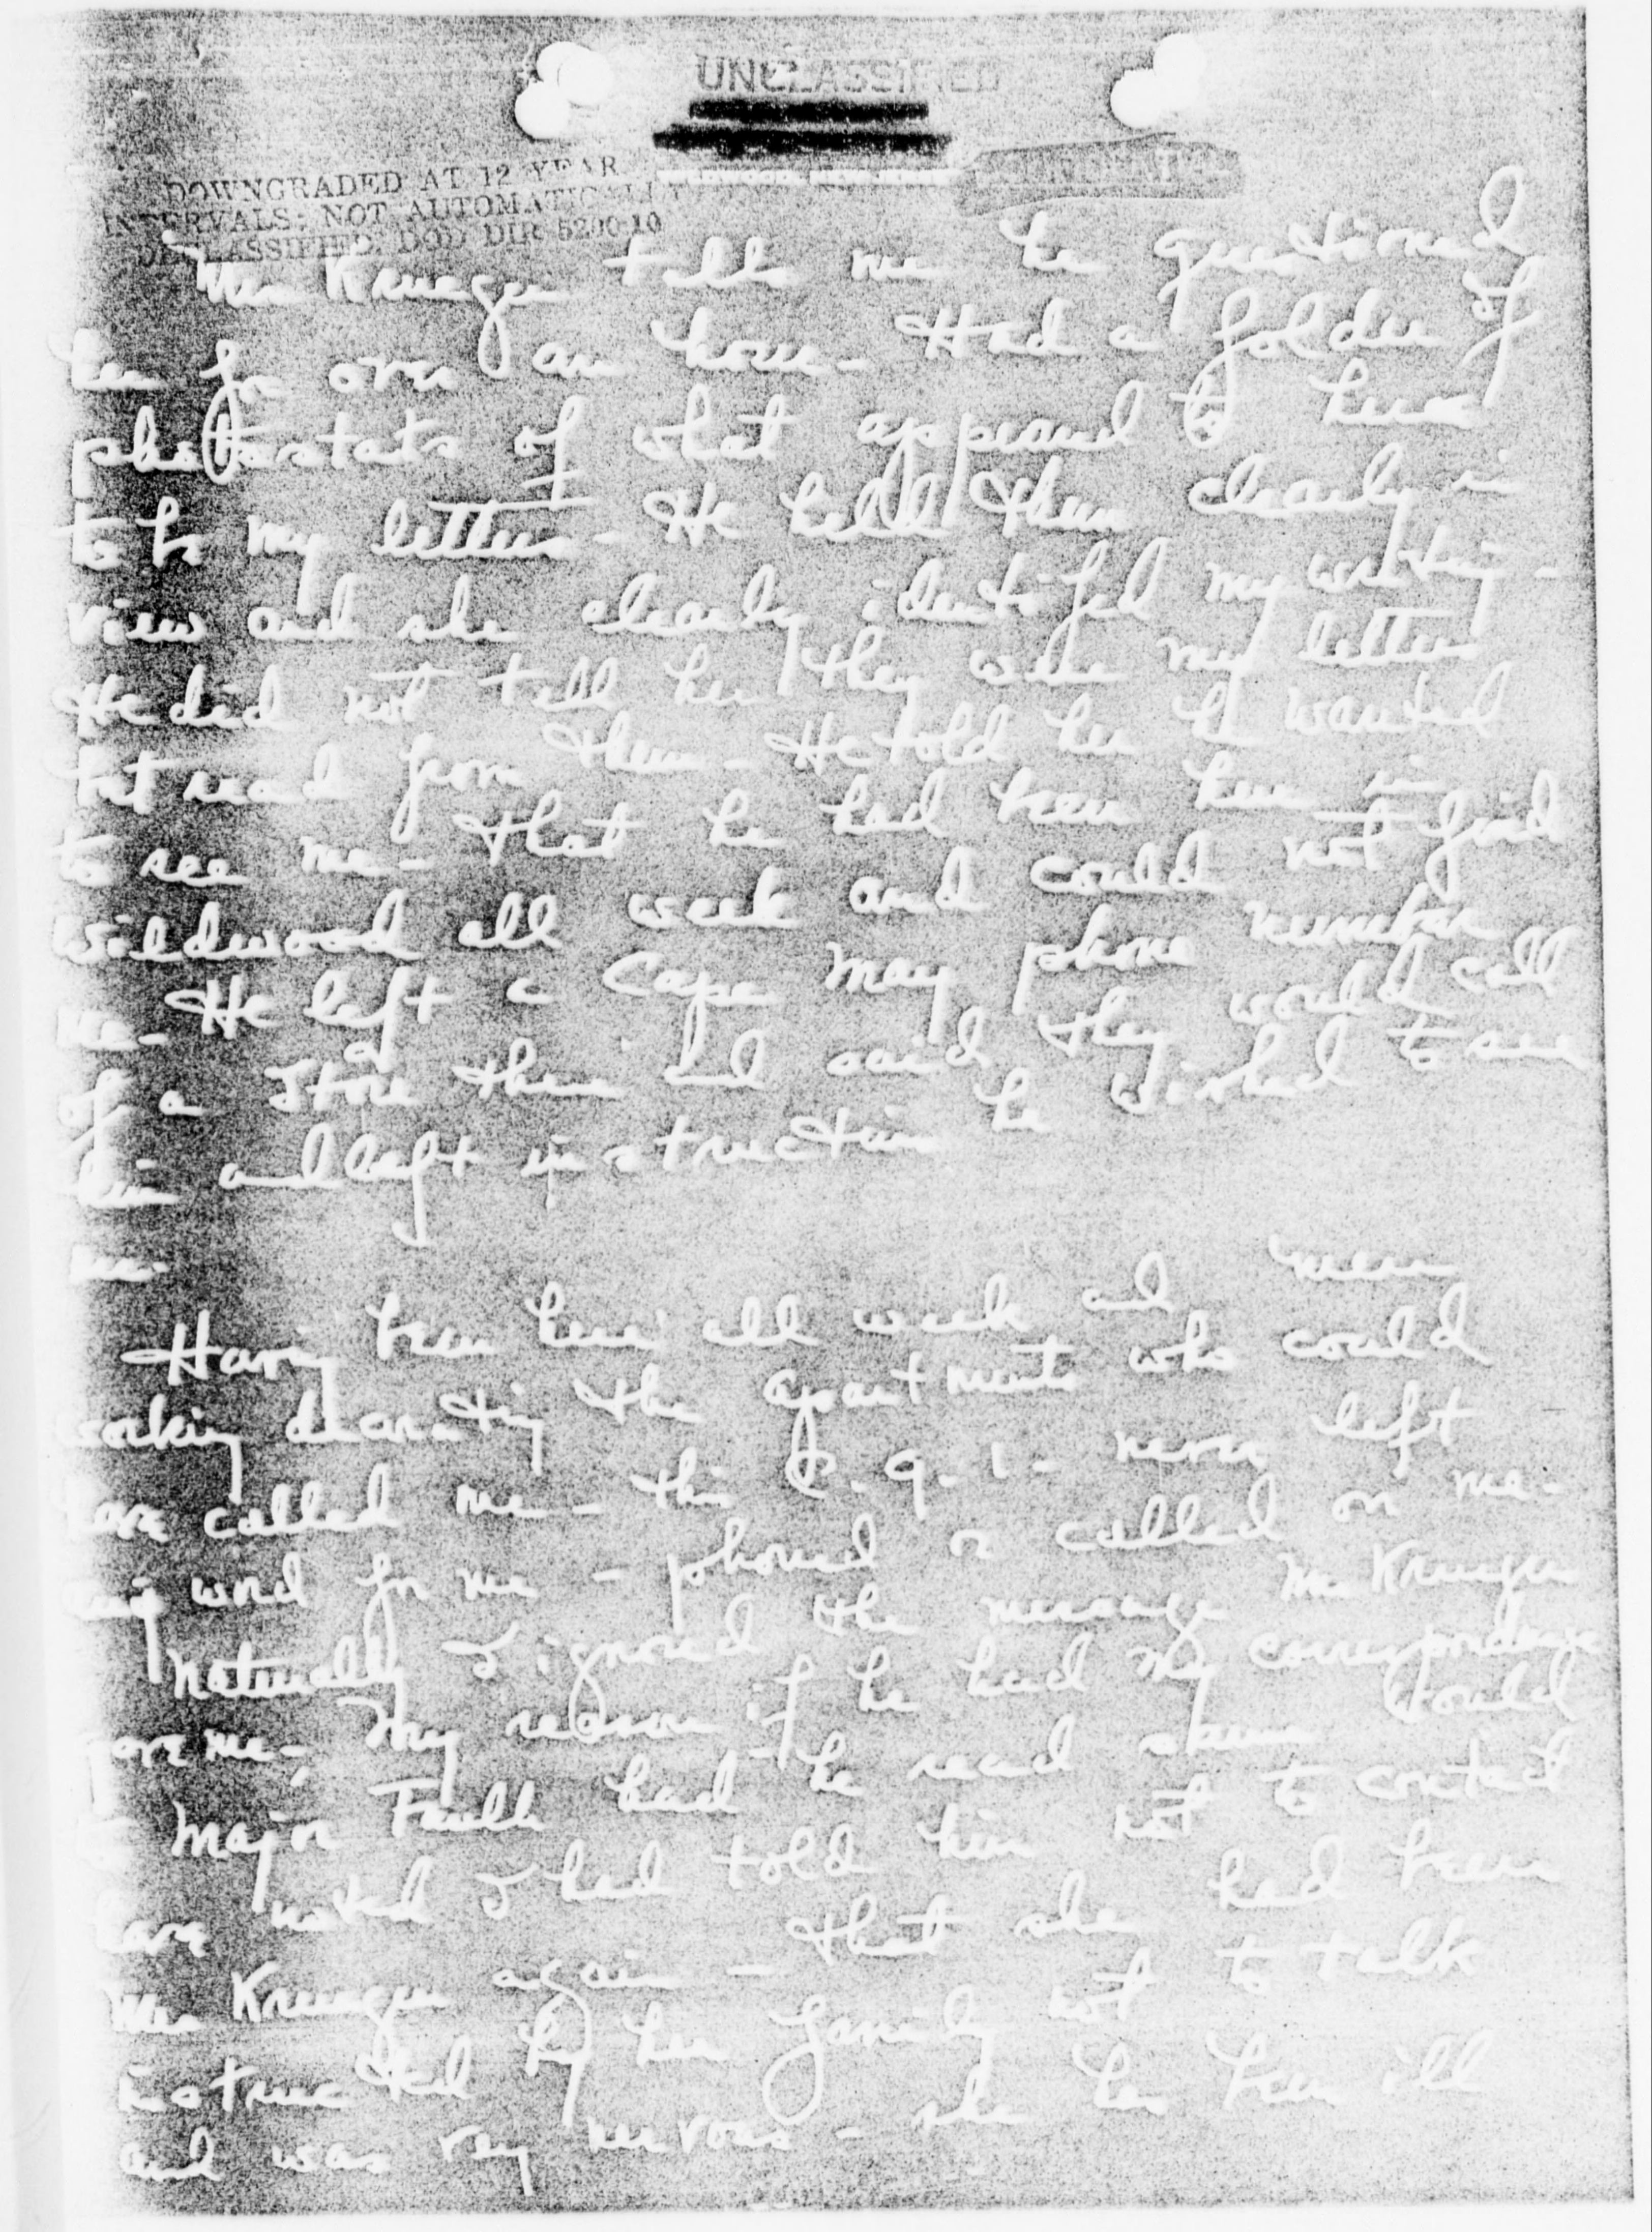 UNCLASSIFIED
DOWNGRADED AT 12 YEAR
INTERVALS; NOT AUTOMATICALLY
DECLASSIFIED. DOD DIR 5200.10
Mrs Krueger tells me he questioned
her for over an hour - Had a folder of
photostats of what appeared to her
to be my letters - He held them clearly in
view and she clearly identifed my writing -
He did not tell her they were my letters
but read from them - He told her he wanted
to see me - that he had been here in
Wildwood all week and could not find
me - He left a Cape May phone number
of a store there and said they would call
him and left instructions he wished to see
me -
Having been here all week and men
working decorating the apartments who could
have called me - this C.I.C. - never left
any word for me - phoned or called on me -
Naturally I ignored the message Mrs Krueger
gave me - My reason if he had my correspondence
to Major had he read them would
have noted I had told him not to contact
Mrs Krueger again - that she had been
instructed by her family not to talk
and was very nervous - she has been ill